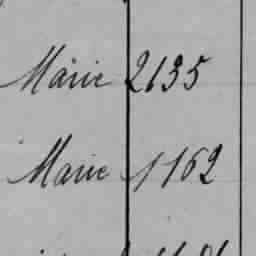 Marie 2135
Marie 1162